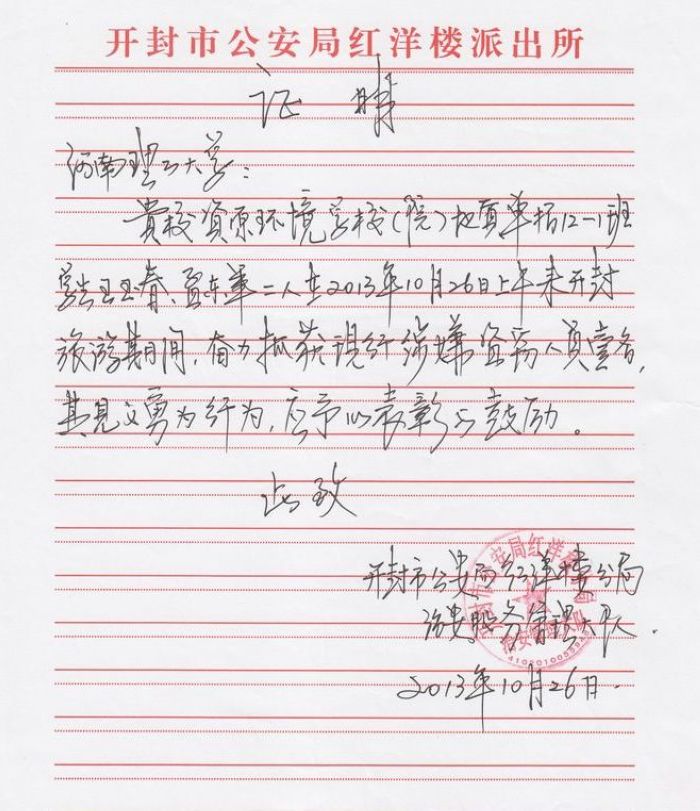 开封市公安局红洋楼派出所
证明
河南理工大学:
贵校资原环境学校(院)地质单招12-1班
学生王玉春、贾东军二人在2013年10月26日上午来开封
旅游期间,奋力抓获现行涉嫌盗窃人员壹名,
其见义勇为行为,应予以表彰与鼓励。
此致
开封市公安局红洋楼分局
治安服务管理大队.
2013年10月26日.